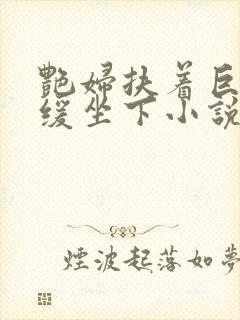 艷婦扶着巨
缓坐下小說
煙波起落如夢